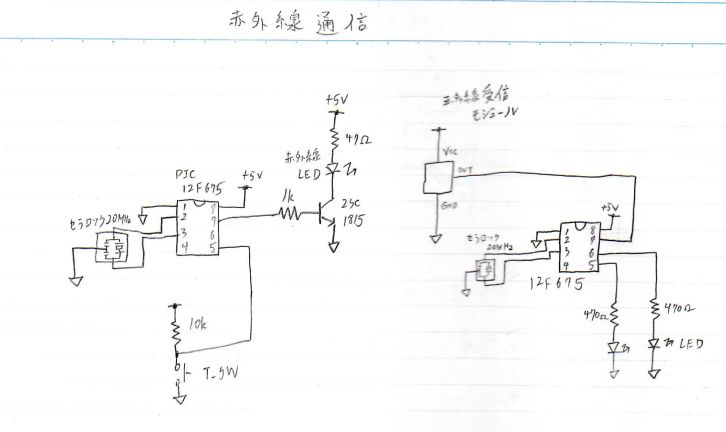 赤外線通信
+5V
47Ω
赤外線
LED
PIC
12F675
+5V
1k
2SC
1815
セラロック20MHz
1
2
3
4
8
7
6
5
10k
T_SW
赤外線受信
モジュール
Vcc
OUT
GND
+5V
セラロック
20MHz
1
2
3
4
8
7
6
5
12F675
470Ω
470Ω
LED